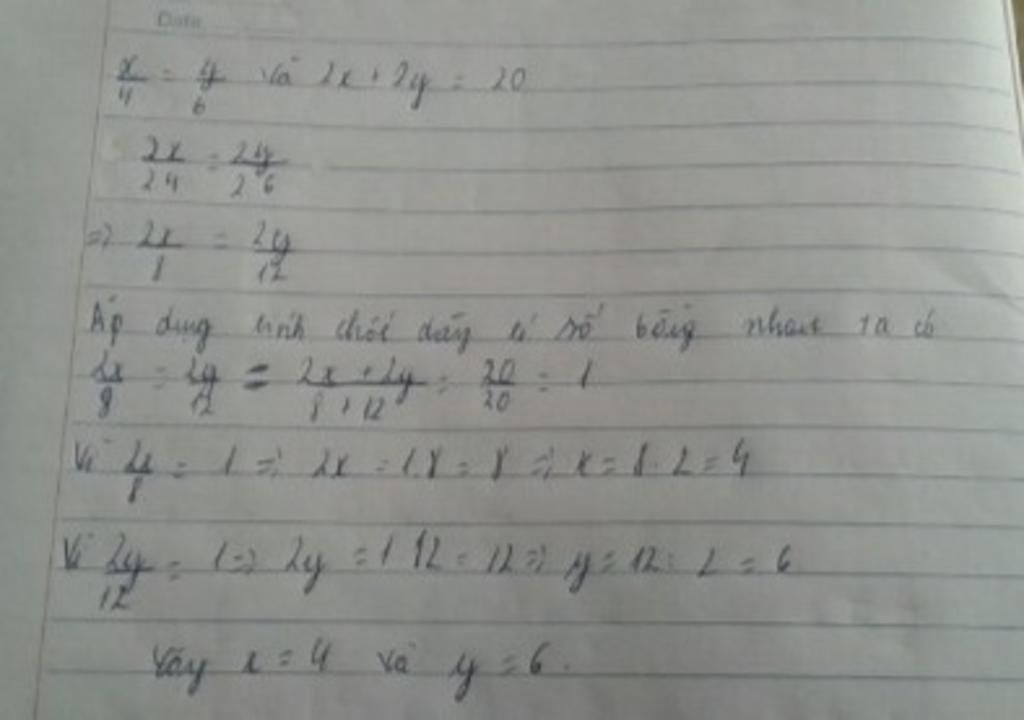 Date
x/4 = y/6 và 2x + 2y = 20
2x/2.4 = 2y/2.6
=> 2x/8 = 2y/12
Áp dụng tính chất dãy tỉ số bằng nhau ta có
2x/8 = 2y/12 = 2x + 2y/8 + 12 = 20/20 = 1
Vì 2x/8 = 1 => 2x = 1.8 = 8 => x = 8 : 2 = 4
Vì 2y/12 = 1 => 2y = 1.12 = 12 => y = 12 : 2 = 6
Vậy x = 4 và y = 6.